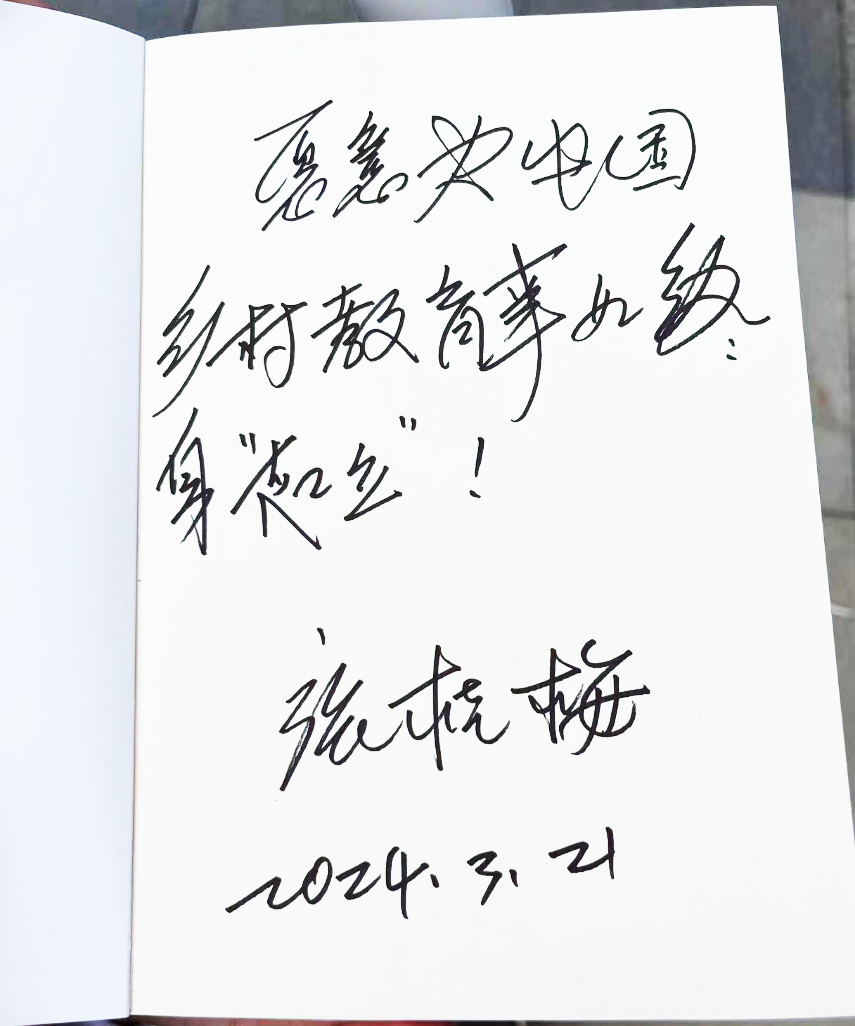 愿意为中国
乡村教育事业终
身“起立”！
张桂梅
2024.3.21